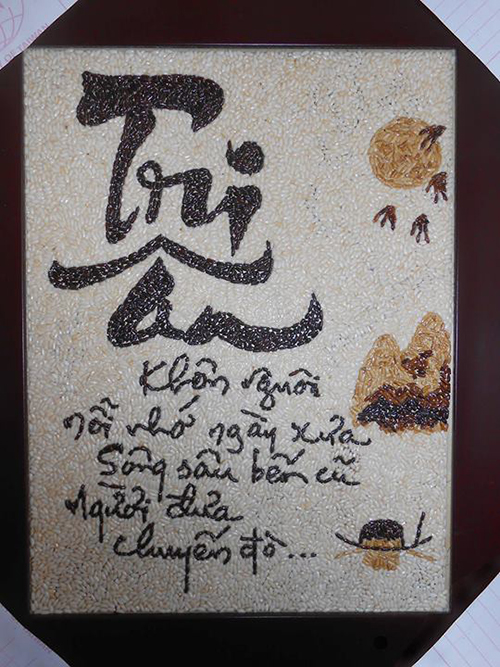 Tri
ân
Khôn nguôi
nỗi nhớ ngày xưa
Sông sâu bến cũ
Người đưa
chuyến đò...